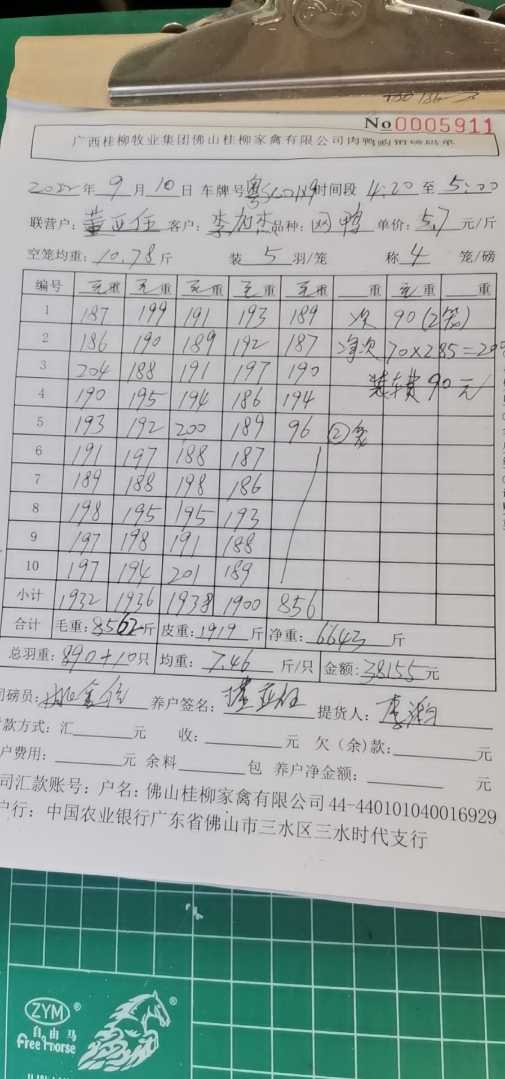 No 0005911
广西桂柳牧业集团佛山桂柳家禽有限公司肉鸭购销磅码单
2022年 9 月 10 日 车牌号 时间段 4:20 至 5:00
联营户: 董亚任 客户: 品种: 单价: 5.7 元/斤
空笼均重: 10.78 斤 装 5 羽/笼 称 4 笼/磅
编号 毛重 毛重 毛重 毛重 毛重 重 毛重 重
1 187 199 191 193 189 次 90 (2笼)
2 186 190 189 192 187 净次 70×2.85=
3 204 188 191 197 190 装车费 90元
4 190 195 194 186 194
5 193 192 200 189 96 ②笼
6 191 197 188 187
7 189 188 198 186
8 198 195 195 193
9 197 198 191 188
10 197 194 201 189
小计 1932 1936 1938 1900 856
合计 毛重: 8562 斤 皮重: 1919 斤 净重: 6643 斤
总羽重: 890+10 只 均重: 7.46 斤/只 金额: 38155 元
司磅员: 养户签名: 董亚任 提货人:
款方式: 汇 元 收: 元 欠(余)款: 元
户费用: 元 余料 包 养户净金额: 元
司汇款账号: 户名: 佛山桂柳家禽有限公司 44-440101040016929
户行: 中国农业银行广东省佛山市三水区三水时代支行
ZYM ®
自由马
Free horse